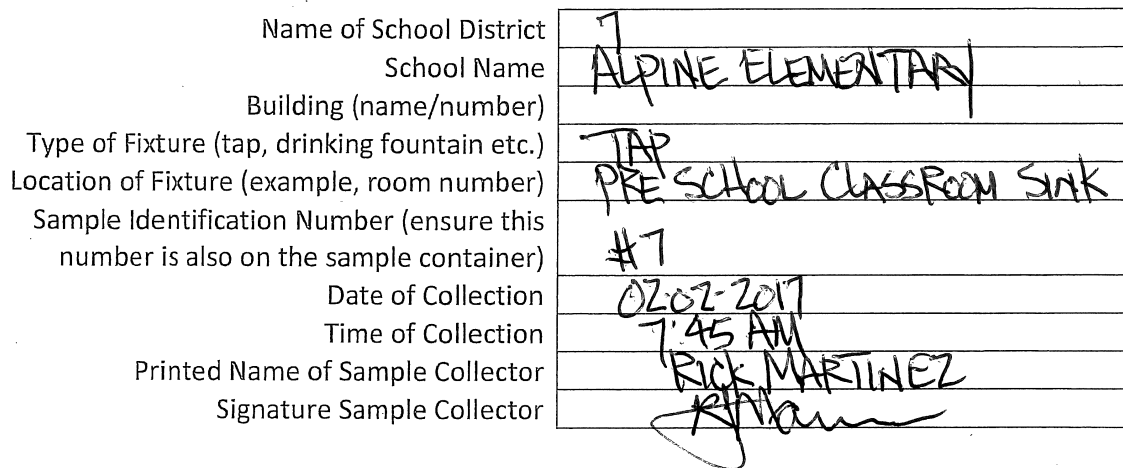 Name of School District 7
School Name ALPINE ELEMENTARY
Building (name/number)
Type of Fixture (tap, drinking fountain etc.) TAP
Location of Fixture (example, room number) PRE SCHOOL CLASSROOM SINK
Sample Identification Number (ensure this
number is also on the sample container) #7
Date of Collection 02-02-2017
Time of Collection 7:45 AM
Printed Name of Sample Collector RICK MARTINEZ
Signature Sample Collector